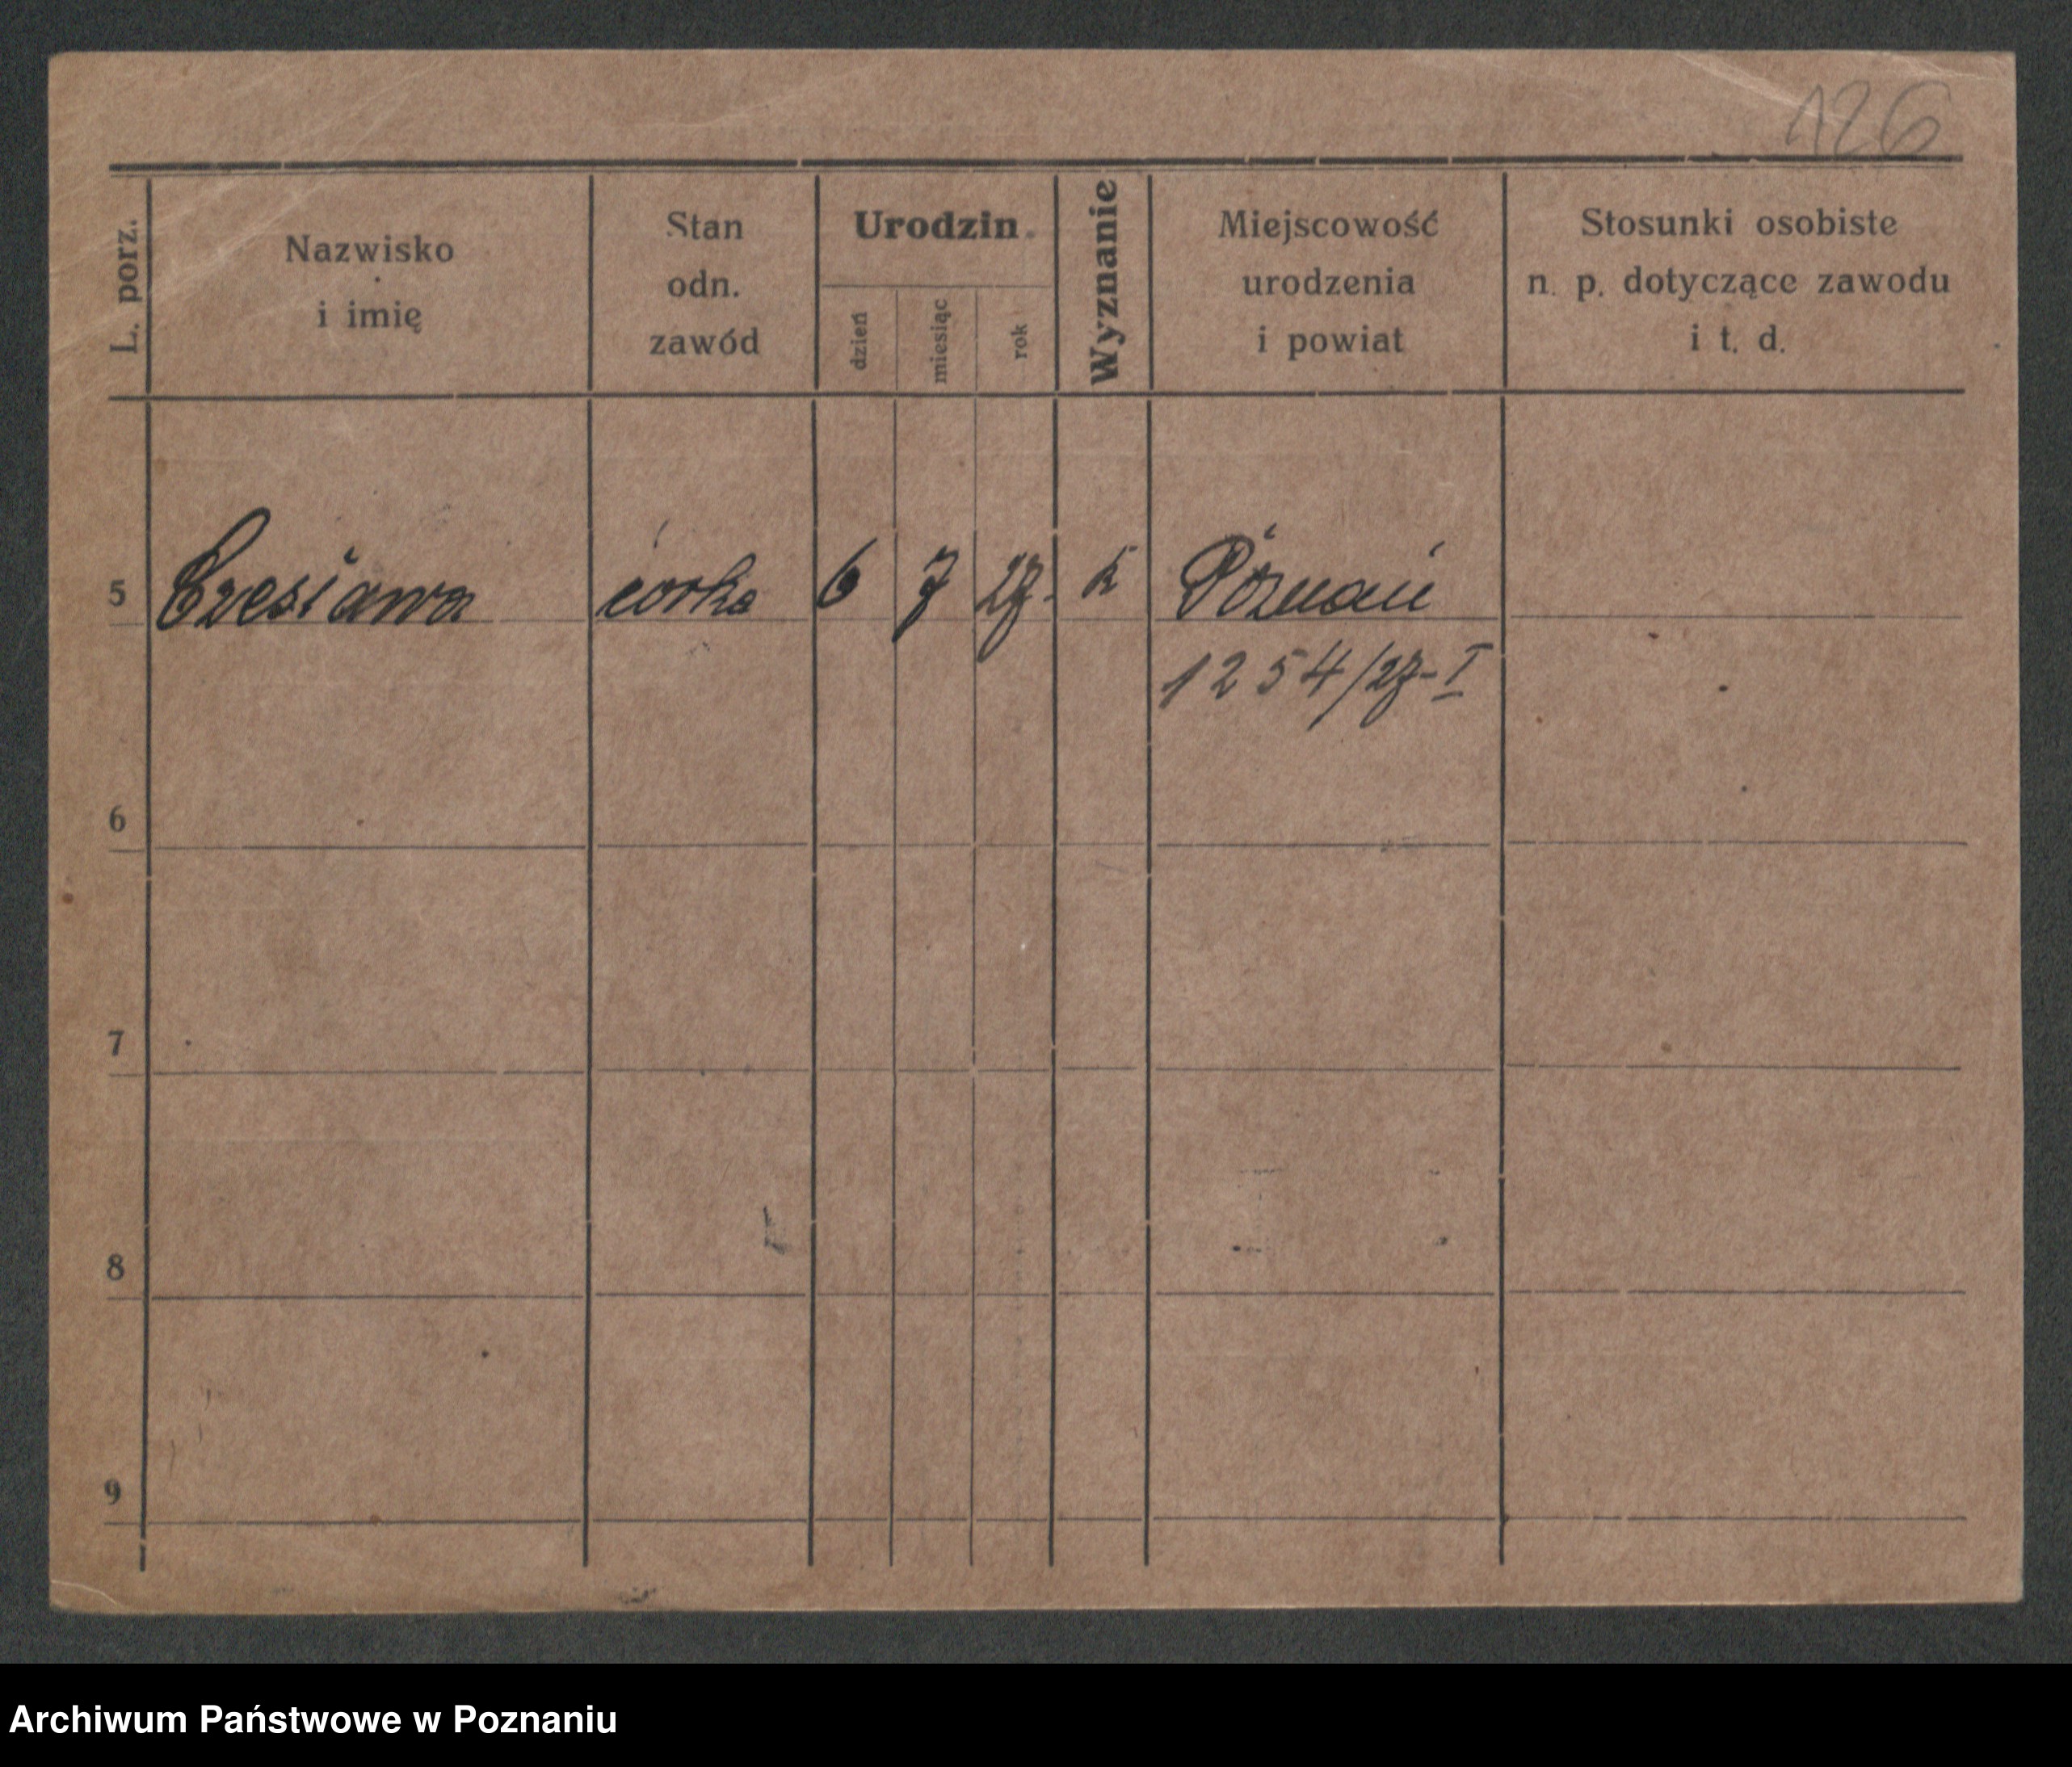 126
L. porz.
Nazwisko
i imię
Stan
odn.
zawód
Urodzin
dzień
miesiąc
rok
Wyznanie
Miejscowość
urodzenia
i powiat
Stosunki osobiste
n. p. dotyczące zawodu
i t. d.
5 Czesława córka 6 7 27. k Poznań
1254/27-I
6
7
8
9
Archiwum Państwowe w Poznaniu